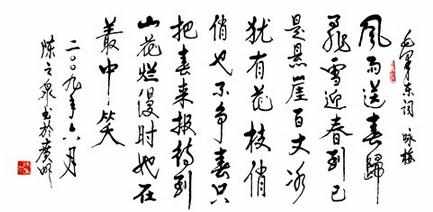 毛泽东词 咏梅
风雨送春歸
飛雪迎春到已
是悬崖百丈冰
犹有花枝俏
俏也不争春只
把春来报待到
山花烂漫时她在
叢中笑
二〇〇九年六月
陈之泉书於